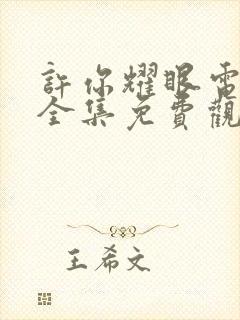 許你耀眼電
全集免費觀
王希文